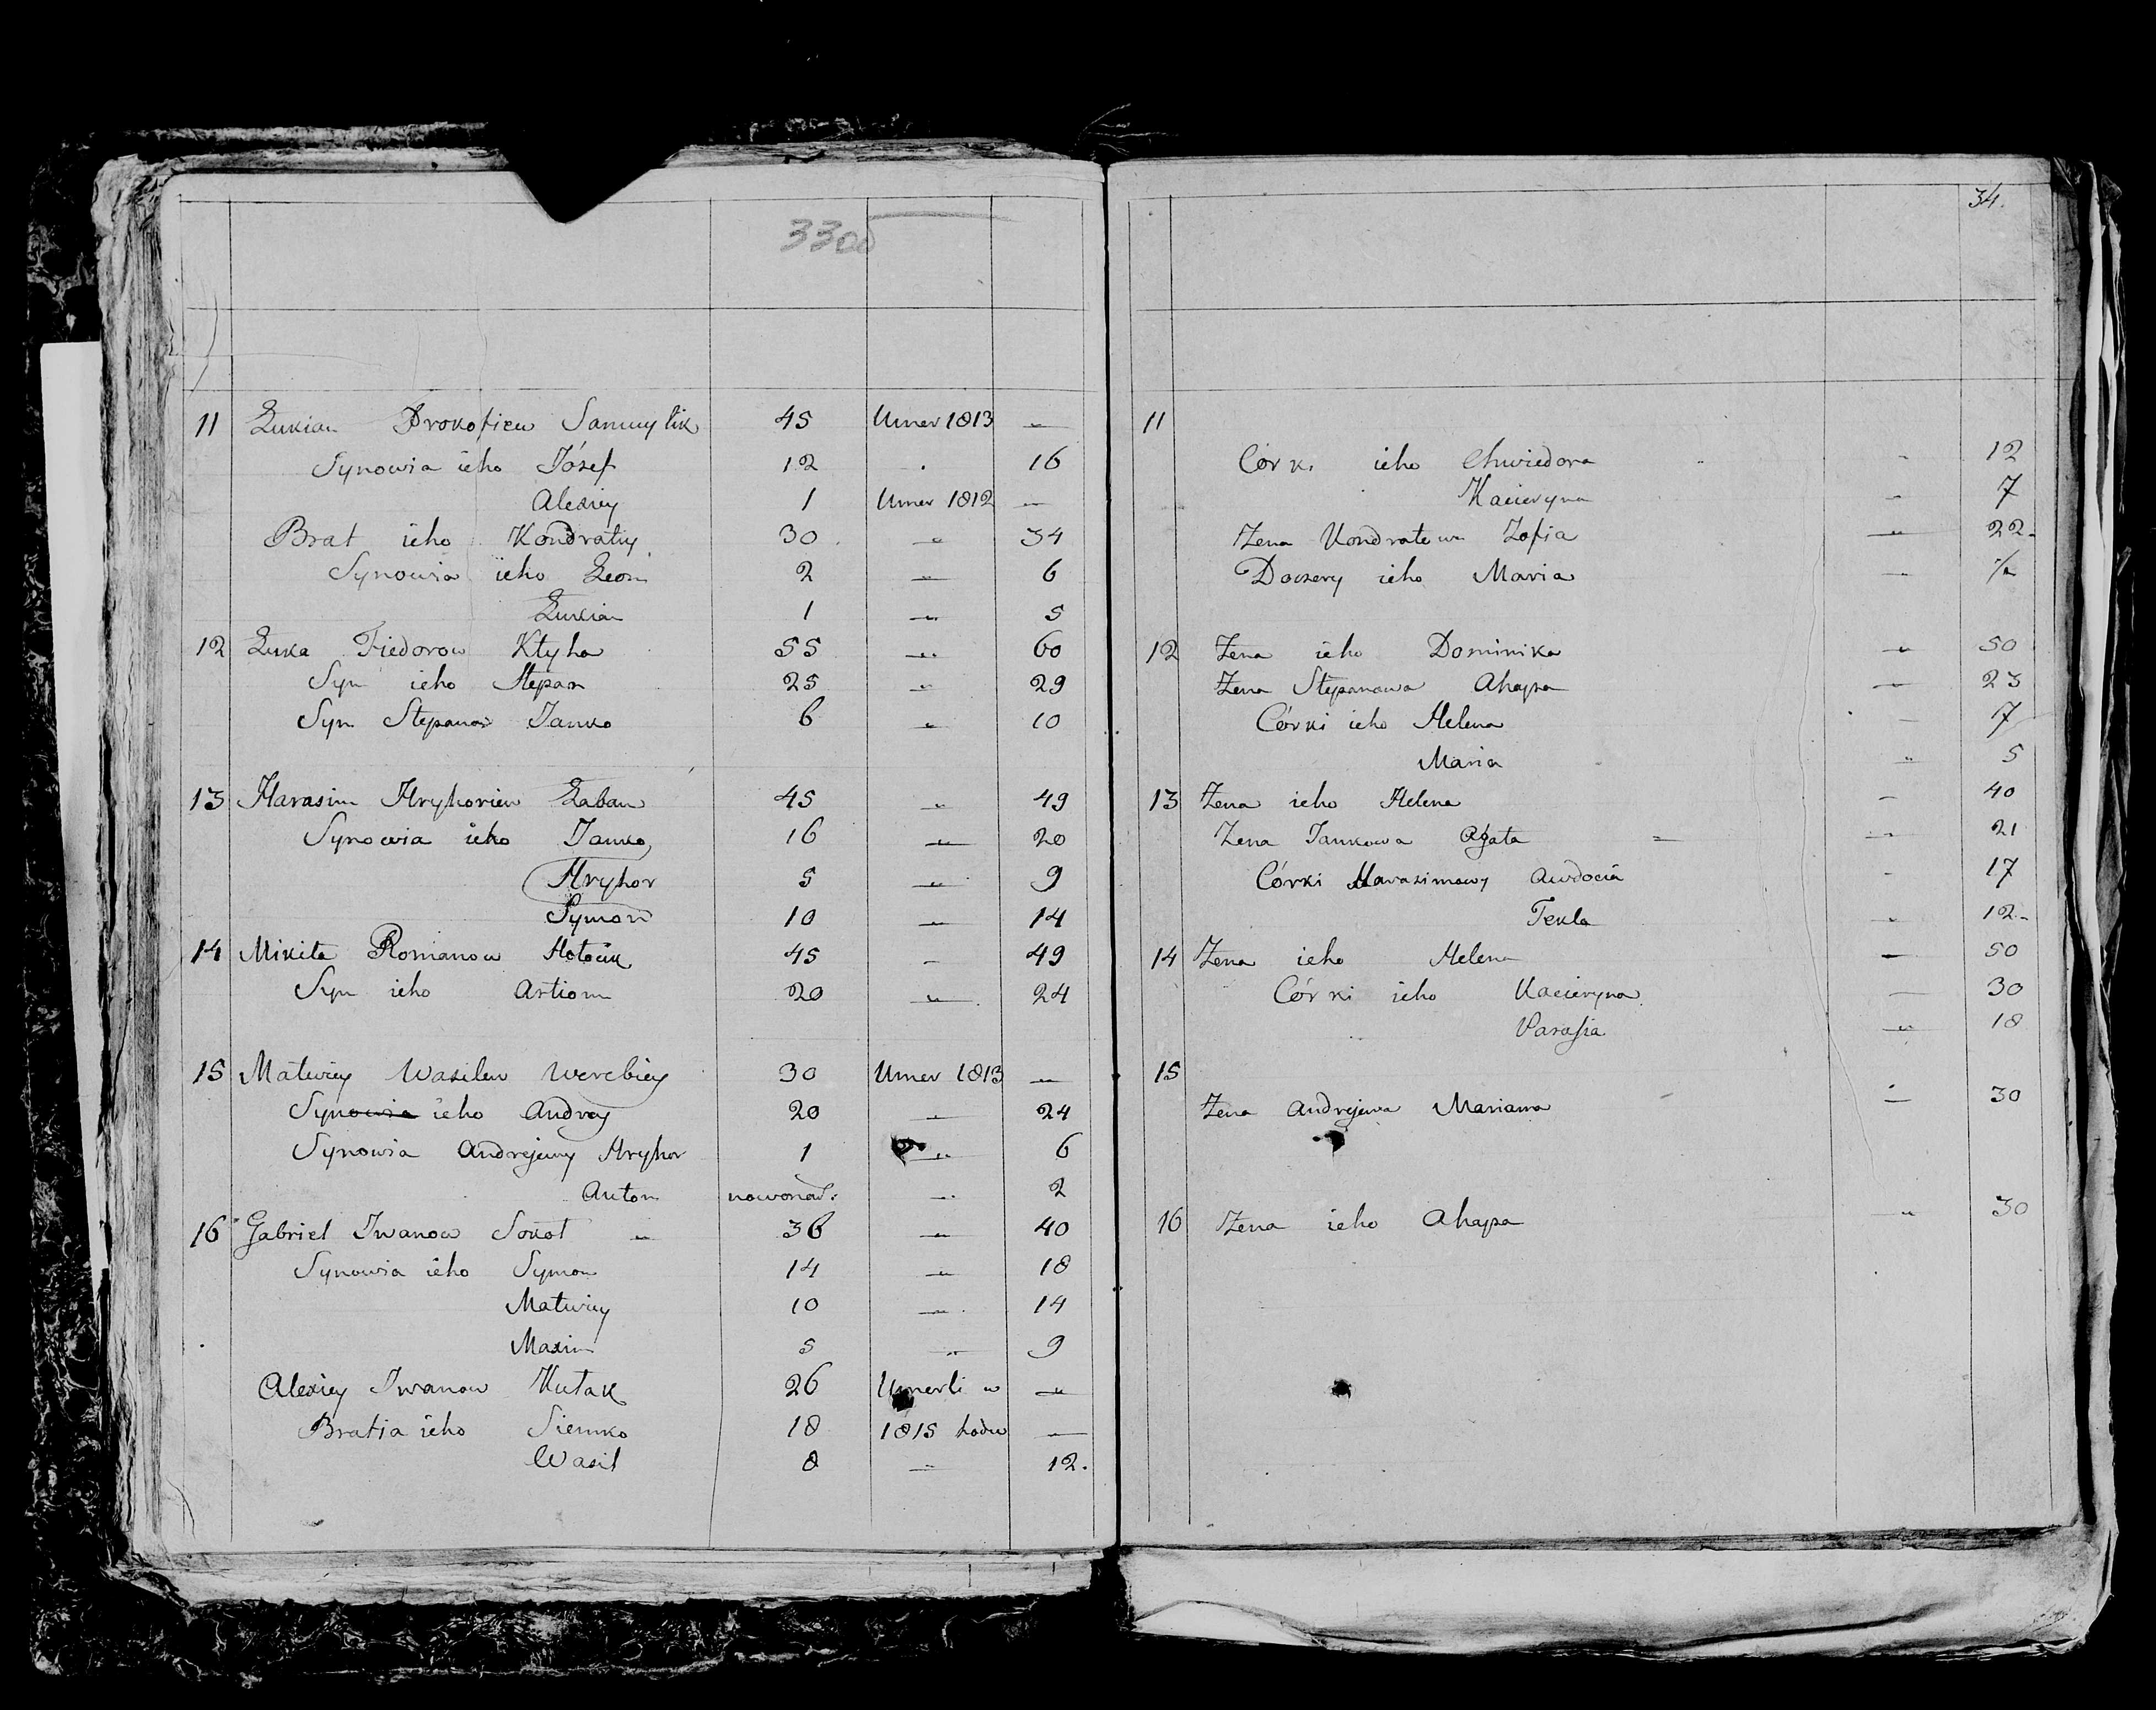 3300
11 Łukian Prokofiew Samuylik 45 Umer 1813 —
Synowia ieho Józef 12 . 16
Alexiey 1 Umer 1812 —
Brat ieho Kondratiy 30 — 34
Synowia ieho Leon 2 — 6
Łukian 1 — 5
12 Łuka Fiedorow Kłyha 55 — 60
Syn ieho Stepan 25 — 29
Syn Stepanow Janko 6 — 10
13 Harasim Hryhoriew Łaban 45 — 49
Synowia ieho Janko 16 — 20
Hryhor 5 — 9
Symon 10 — 14
14 Mikita Romanow Hołocik 45 — 49
Syn ieho Artiom 20 — 24
15 Matwiey Wasilew Werebiey 30 Umer 1813 —
Synowia ieho Andrey 20 — 24
Synowia Andrejewy Hryhor 1 — 6
Anton nowonar. — 2
16 Gabriel Iwanow Sokoł — 36 — 40
Synowia ieho Symon 14 — 18
Matwiey 10 — 14
Maxim 5 — 9
Alexiey Iwanow Kutak 26 Umerli w —
Bratia ieho Siemko 18 1815 hodu —
Wasil 8 — 12.
34.
11
Córki ieho Chwiedora — 12
Kacieryna — 7
Żena Kondratowa Zofia — 22.
Doczery ieho Maria — ½
12 Żena ieho Dominika — 50
Żena Stepanowa Ahapa — 23
Córki ieho Helena — 7
Maria — 5
13 Żena ieho Helena — 40
Żena Jankowa Agata — 21
Córki Harasimowy Awdocia - 17
Tekla — 12.
14 Żena ieho Helena — 50
Córki ieho Kacieryna — 30
Parasia — 18
15
Żena Andrejewa Marianna — 30
16 Żena ieho Ahapa — 30